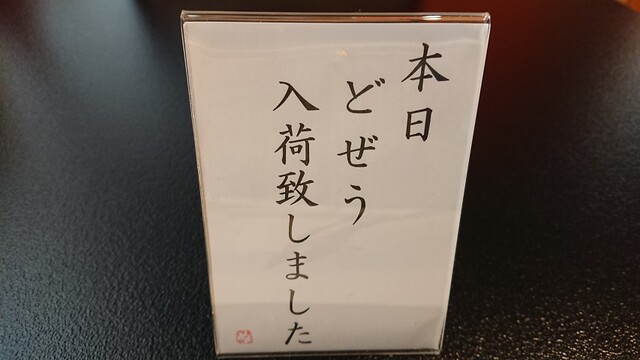 本日
どぜう
入荷致しました